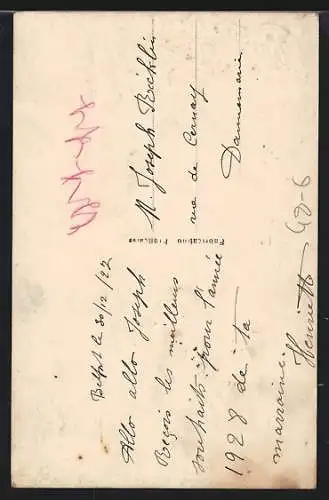 Belfort le 30/12/27
Allo allo Joseph
Reçois les meilleurs
souhaits pour l'année
1928 de ta
marraine.
Henriette
Fabrication Française
M. Joseph
rue de Cernay
Dannemarie